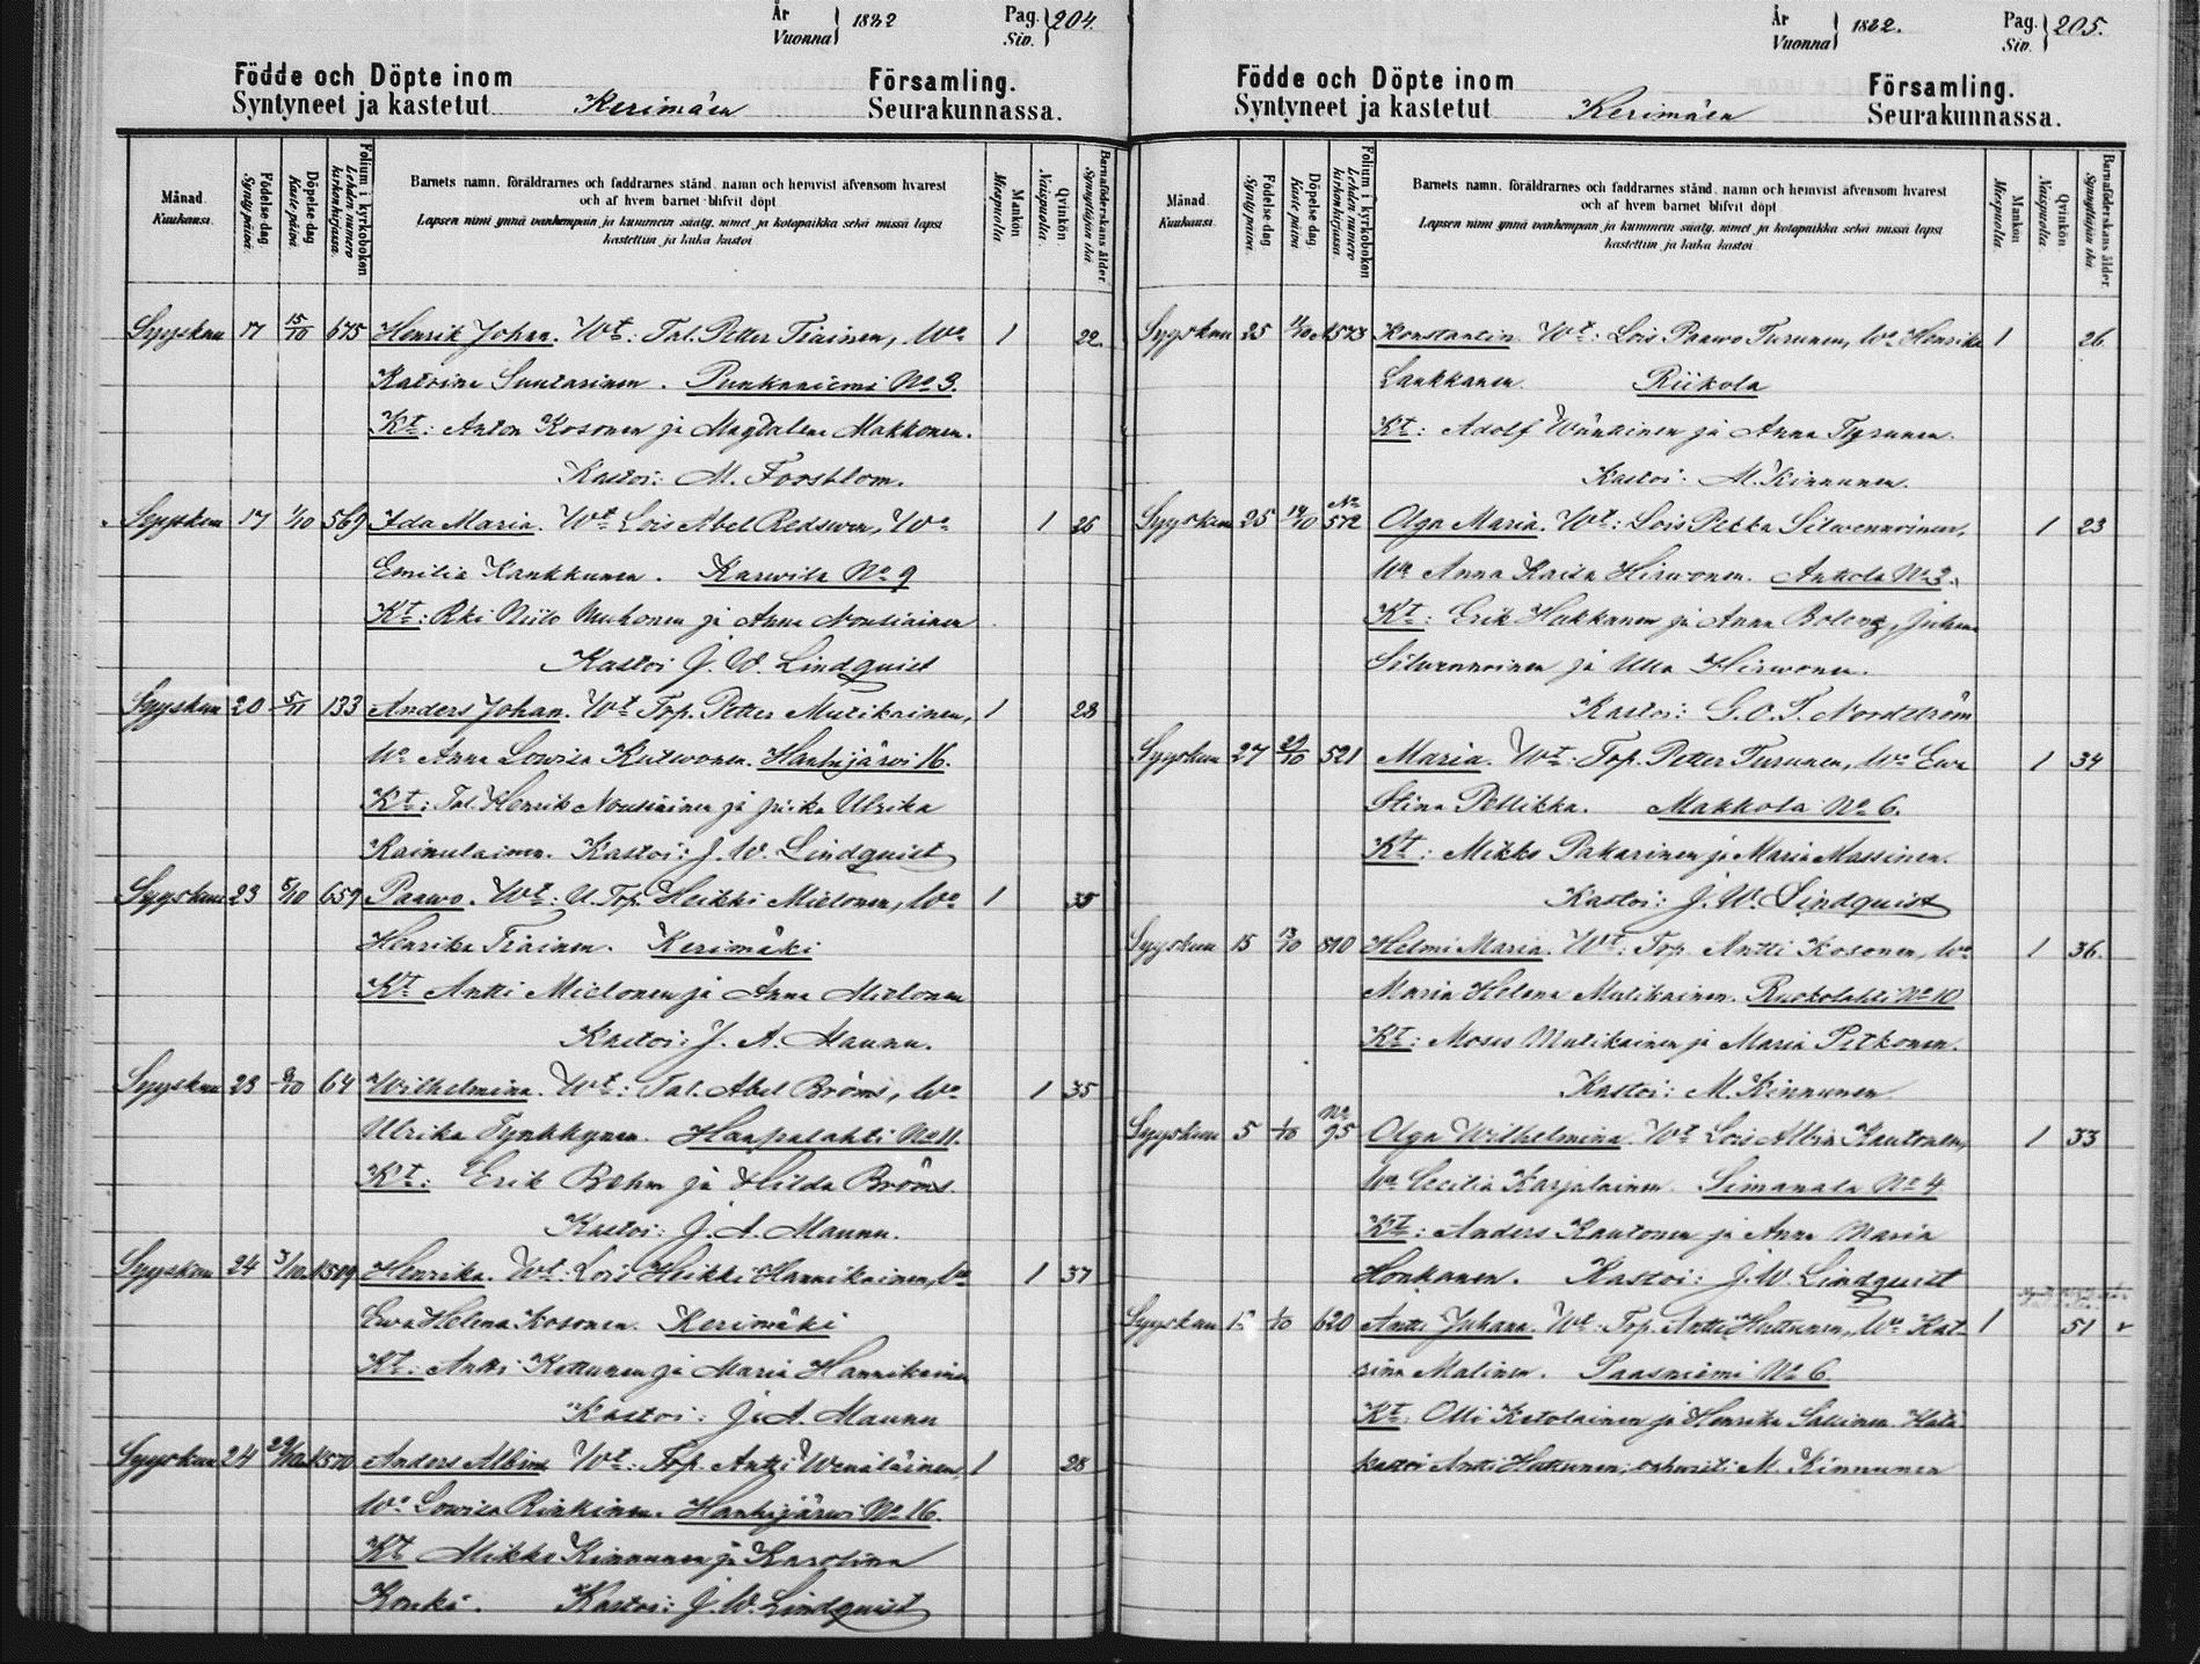 År
Vuonna } 1882 Pag.
Siv. } 204.
Födde och Döpte inom Församling.
Syntyneet ja kastetut Kerimäen Seurakunnassa.
Månad
Kuukausi.
Födelse-dag
Synty päivä.
Döpelse-dag
Kaste päivä.
Folium i kyrkoboken
Lehden numero
kirkonkirjassa.
Barnets namn, föräldrarnes och faddrarnes stånd, namn och hemvist äfvensom hvarest
och af hvem barnet blifvit döpt
Lapsen nimi ynnä vanhempain ja kummein sääty, nimet ja kotopaikka sekä missä lapsi
kastettiin ja kuka kastoi
Mankön
Miespuolia
Qvinkön
Naispuolia.
Barnaföderskans ålder
Synnyttäjän ikä
Syyskuu 17 15/10 675 Henrik Johan. Wt: Tal. Petter Tiainen, Wo 1 22.
Katrina Suutarinen. Punkaniemi No 3.
Kt: Anton Kosonen ja Magdalena Makkonen.
Kastoi: M. Forsblom.
Syyskuu 17 1/10 569 Ida Maria. Wt Lois Abel Redsven, Wo 1 26
Emilia Kankkunen. Karvila No 9
Kt: Rki Niilo Muhonen ja Anna Nousiainen
Kastoi J. W. Lindquist
Syyskuu 20 5/11 133 Anders Johan. Wt Top. Petter Mutikainen, 1 28
Wo Anna Lowisa Kutvonen. Hanhijärvi 16.
Kt: Tal. Henrik Nousiainen ja Ulrika
Kainulainen. Kastoi: J. W. Lindquist
Syyskuu 23 8/10 659 Paavo. Wt: U. Top. Heikki Mielonen, Wo 1 35
Henrika Tiainen. Kerimäki
Kt Antti Mielonen ja Anna Mielonen
Kastoi: J. A. Maunu.
Syyskuu 23 8/10 64 Wilhelmina. Wt: Tal. Abel Bröms, Wo 1 35
Ulrika Tynkkynen. Haapalahti No 11.
Kt: Erik Behm ja Hilda Bröms.
Kastoi: J. A. Maunu.
Syyskuu 24 3/10 1509 Henrika. Wt: Lois Heikki Hannikainen, Wo 1 37
Ewa Helena Kosonen. Kerimäki
Kt: Antti Kettunen ja Maria Hannikainen
Kastoi: J. A. Maunu
Syyskuu 24 29/10 1570 Anders Albin Wt: Top. Antti Wenäläinen, 1 28
Wo Lowisa Rinkinen. Hanhijärvi No 16.
Kt Mikko Kinnunen ja Karolina
Konki. Kastoi: J. W. Lindquist
År
Vuonna } 1882. Pag.
Siv. } 205.
Födde och Döpte inom Församling.
Syntyneet ja kastetut Kerimäen Seurakunnassa.
Månad
Kuukausi.
Födelse-dag
Synty päivä.
Döpelse-dag
Kaste päivä.
Folium i kyrkoboken
Lehden numero
kirkonkirjassa.
Barnets namn, föräldrarnes och faddrarnes stånd, namn och hemvist äfvensom hvarest
och af hvem barnet blifvit döpt
Lapsen nimi ynnä vanhempain ja kummein sääty, nimet ja kotopaikka sekä missä lapsi
kastettiin ja kuka kastoi
Mankön
Miespuolia.
Qvinkön
Naispuolia.
Barnaföderskans ålder
Synnyttäjän ikä
Syyskuu 25 1573 Konstantin. Wt: Lois Paavo Turunen, Wo Henrika 1 26
Laukkanen. Riikola
Kt: Adolf Wänttinen ja Anna Tyrunen.
Kastoi: M. Kinnunen.
Syyskuu 25 14/10 No 572 Olga Maria. Wt: Lois Pekka Silwennoinen, 1 23
Wo Anna Kaisa Hirvonen. Anttola No 2.
Kt: Erik Hukkanen ja Anna, Juhana
Silvennoinen ja Ulla Hirvonen.
Kastoi: G. O. T. Nordström
Syyskuu 27 29/10 521 Maria. Wt: Top. Petter Turunen, Wo Ewa 1 34
Stina Pellikka. Makkola No 6.
Kt: Mikko Pakarinen ja Maria Massinen.
Kastoi: J. W. Lindquist
Syyskuu 15 13/10 810 Helmi Maria. Wt: Top. Antti Kosonen, Wo 1 36.
Maria Helena Mutikainen. Ruokolahti No 10
Kt: Moses Mutikainen ja Maria Pitkonen.
Kastoi: M. Kinnunen
Syyskuu 5 1/10 No 95 Olga Wilhelmina. Wt Lois Albin Kautonen, 1 33
Wo Cecilia Karjalainen. Simanala No 4
Kt: Anders Kautonen ja Anna Maria
Honkanen. Kastoi: J. W. Lindquist
Syyskuu 1/10 620 Antti Juhana. Wt: Top. Antti Huttunen, Wo Kat- 1 51
rina Malinen. Paasniemi No 6.
Kt: Olli Ketolainen ja Henrika Sallinen. Hätä-
kastoi Antti Huttunen; vahvisti M. Kinnunen